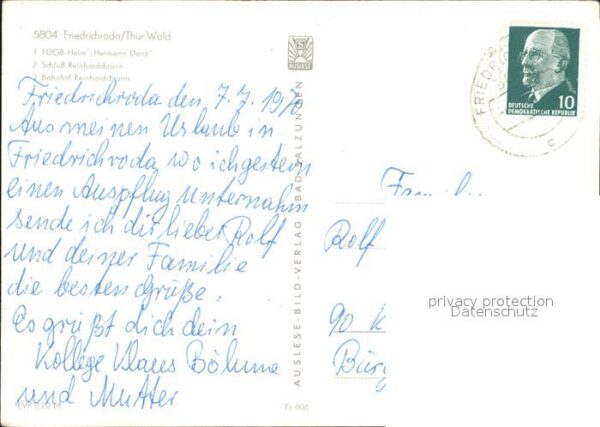 5804 Friedrichroda/Thür. Wald
1 FDGB-Heim „Hermann Danz"
2 Schloß Reinhardsbrunn
3 Bahnhof Reinhardsbrunn
Friedrichroda den, 7.7.1970
Aus meinen Urlaub in
Friedrichroda wo ich gestern
einen Auspflug unternahm
sende ich dir lieber Rolf
und deiner Familie
die besten Grüße.
Es grüßt dich dein
Kollege Klaus Böhme
und Mutter
Fr 606
AUSLESE-BILD-VERLAG BAD SALZUNGEN
DEUTSCHE
DEMOKRATISCHE REPUBLIK
10
FRIEDR
c
Rolf
90 K
Bürg
privacy protection
Datenschutz